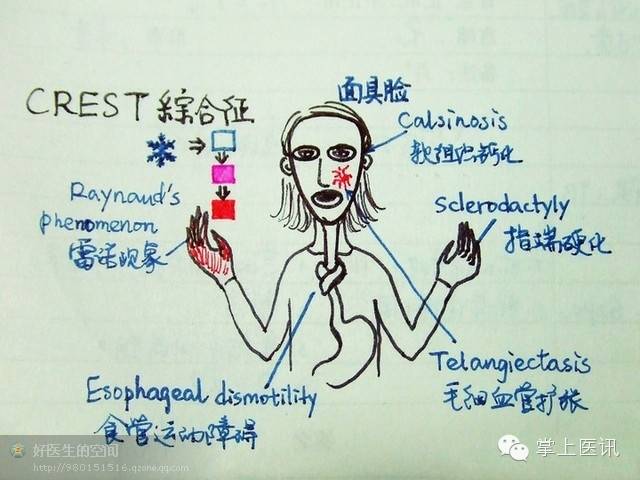 CREST 綜合征
面具脸
Calsinosis
软组织钙化
Raynaud's
phenomenon
雷诺现象
sclerodactyly
指端硬化
Telangiectasis
毛细血管扩张
Esophageal dismotility
食管运动障碍
好医生的空间
http://980151516.qzone.qq.com
掌上医讯